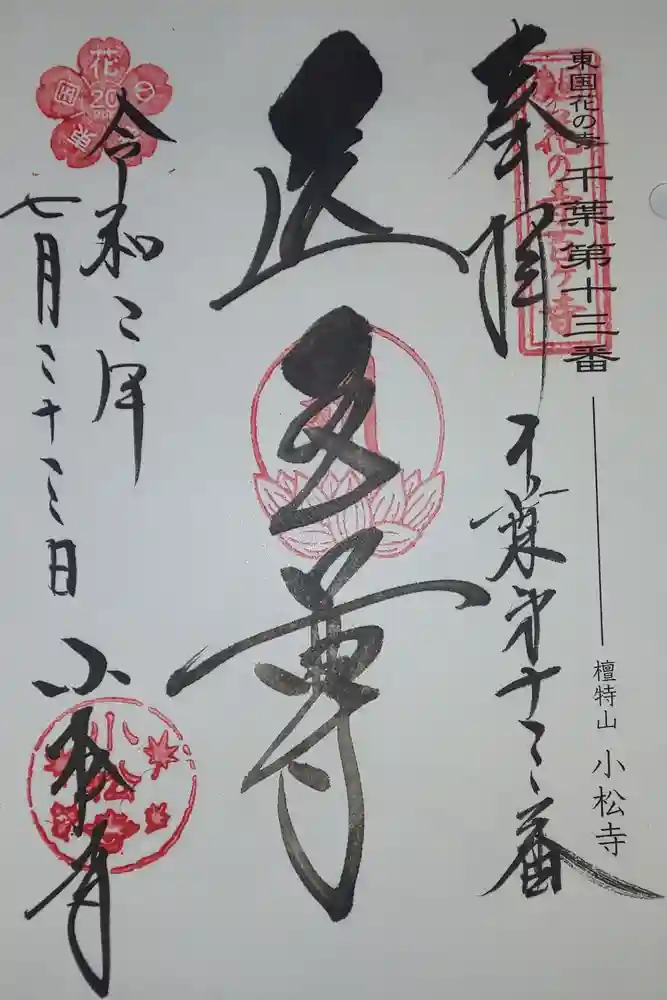 東国花の寺 千葉第十三番 檀特山 小松寺
奉拝
千葉第十三番
医王尊
令和二年
七月二十三日
小松寺
花
20